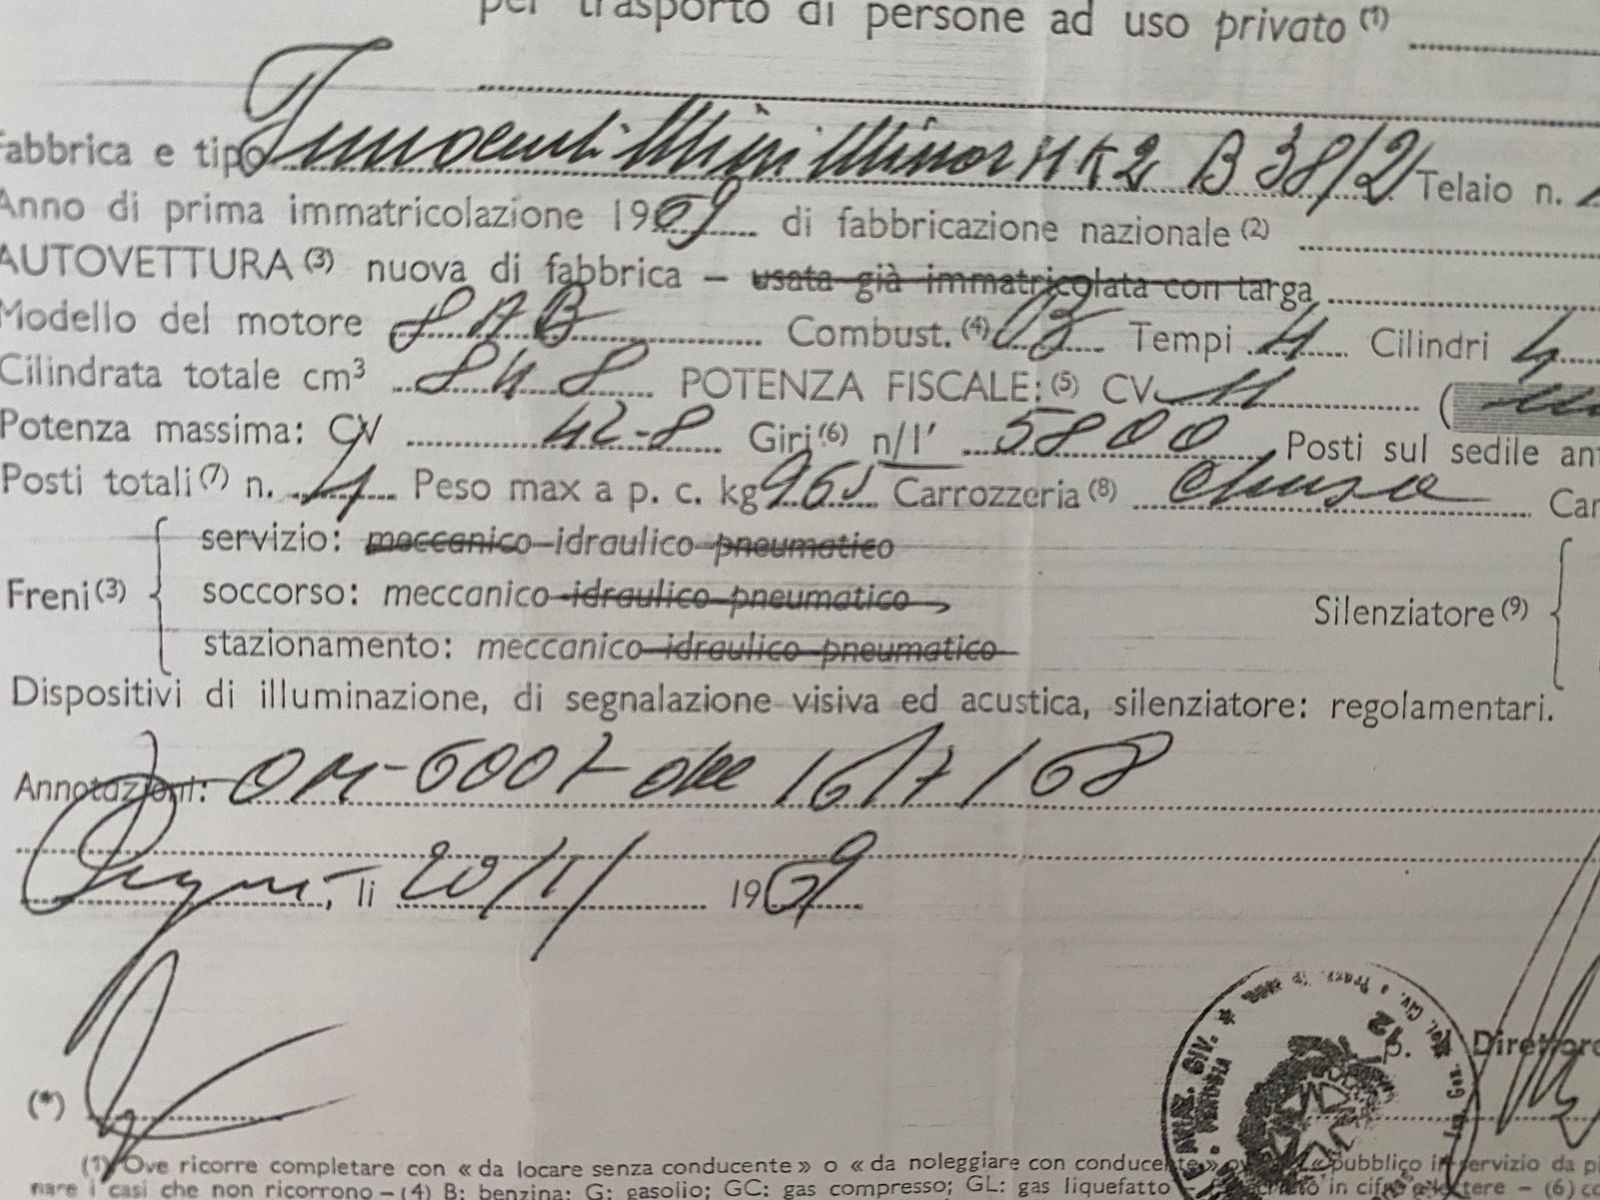 per trasporto di persone ad uso privato (1)
Fabbrica e tipo Innocenti Mini Minor MK2 B 38/2 Telaio n.
Anno di prima immatricolazione 1969 di fabbricazione nazionale (2)
AUTOVETTURA (3) nuova di fabbrica – usata già immatricolata con targa
Modello del motore 8AB Combust. (4) B Tempi 4 Cilindri 4
Cilindrata totale cm³ 848 POTENZA FISCALE: (5) CV 11 (
Potenza massima: CV 42-8 Giri (6) n/1' 5800 Posti sul sedile ant
Posti totali (7) n. 4 Peso max a p. c. kg 965 Carrozzeria (8) chiusa Car
servizio: meccanico-idraulico-pneumatico
Freni (3) soccorso: meccanico-idraulico-pneumatico Silenziatore (9)
stazionamento: meccanico-idraulico-pneumatico
Dispositivi di illuminazione, di segnalazione visiva ed acustica, silenziatore: regolamentari.
Annotazioni: OM-6007 del 16/7/68
, li 20/1/ 1969
p. Direttore
(*)
(1) Ove ricorre completare con « da locare senza conducente » o « da noleggiare con conducente » « pubblico in servizio da pi
nare i casi che non ricorrono – (4) B: benzina; G: gasolio; GC: gas compresso; GL: gas liquefatto in cifre e lettere – (6) co